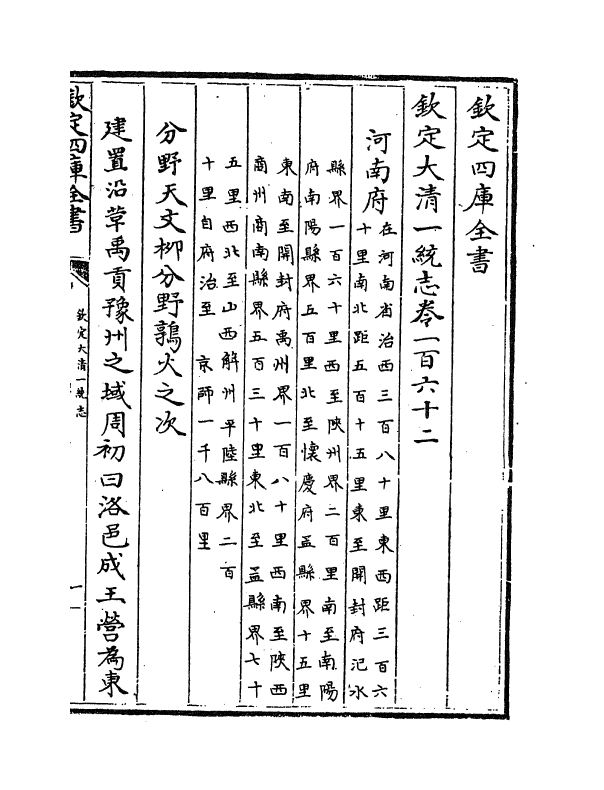 欽定四庫全書
欽定大清一統志卷一百六十二
河南府
在河南省治西三百八十里東西距三百六
十里南北距五百十五里東至開封府氾水
縣界一百六十里西至陝州界二百里南至南陽
府南陽縣界五百里北至懷慶府孟縣界十五里
東南至開封府禹州界一百八十里西南至陝西
商州商南縣界五百三十里東北至孟縣界七十
五里西北至山西解州平陸縣界二百
十里自府治至 京師一千八百里
分野天文柳分野鶉火之次
建置沿革禹貢豫州之域周初曰洛邑成王營為東
欽定四庫全書
欽定大清一統志
一